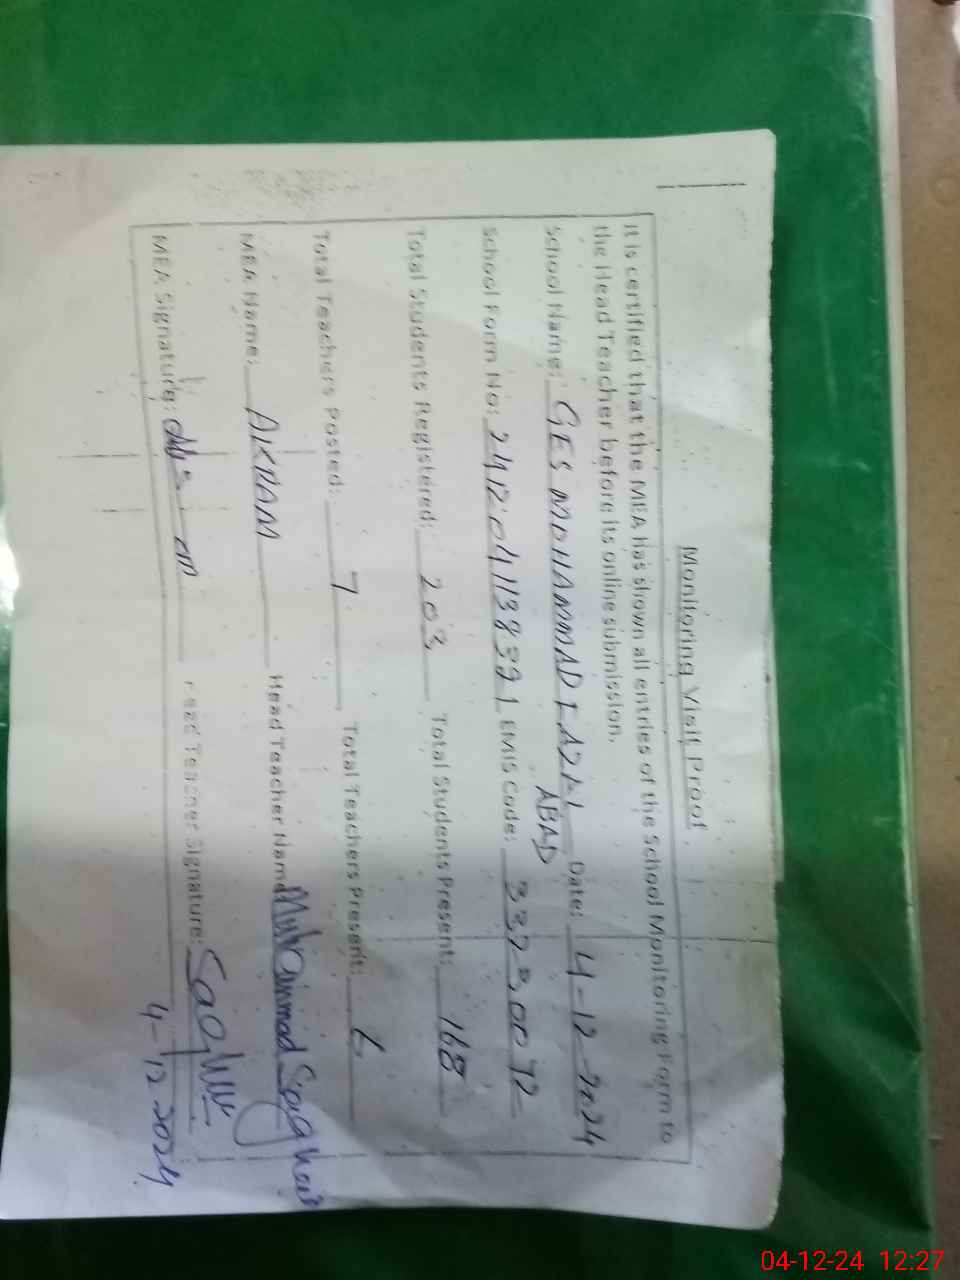 Monitoring Visit Proof
It is certified that the MEA has shown all entries of the School Monitoring Form to
the Head Teacher before its online submission.
School Name: GES MOHAMMAD FAZAL ABAD Date: 4-12-2024
School Form No: EMIS Code:
Total Students Registered: 203 Total Students Present: 168
Total Teachers Posted: 7 Total Teachers Present: 6
MEA Name: AKRAM Head Teacher Name: Muhammad Saghir
MEA Signature: Head Teacher Signature: Saghir
4-12-2024
04-12-24 12:27